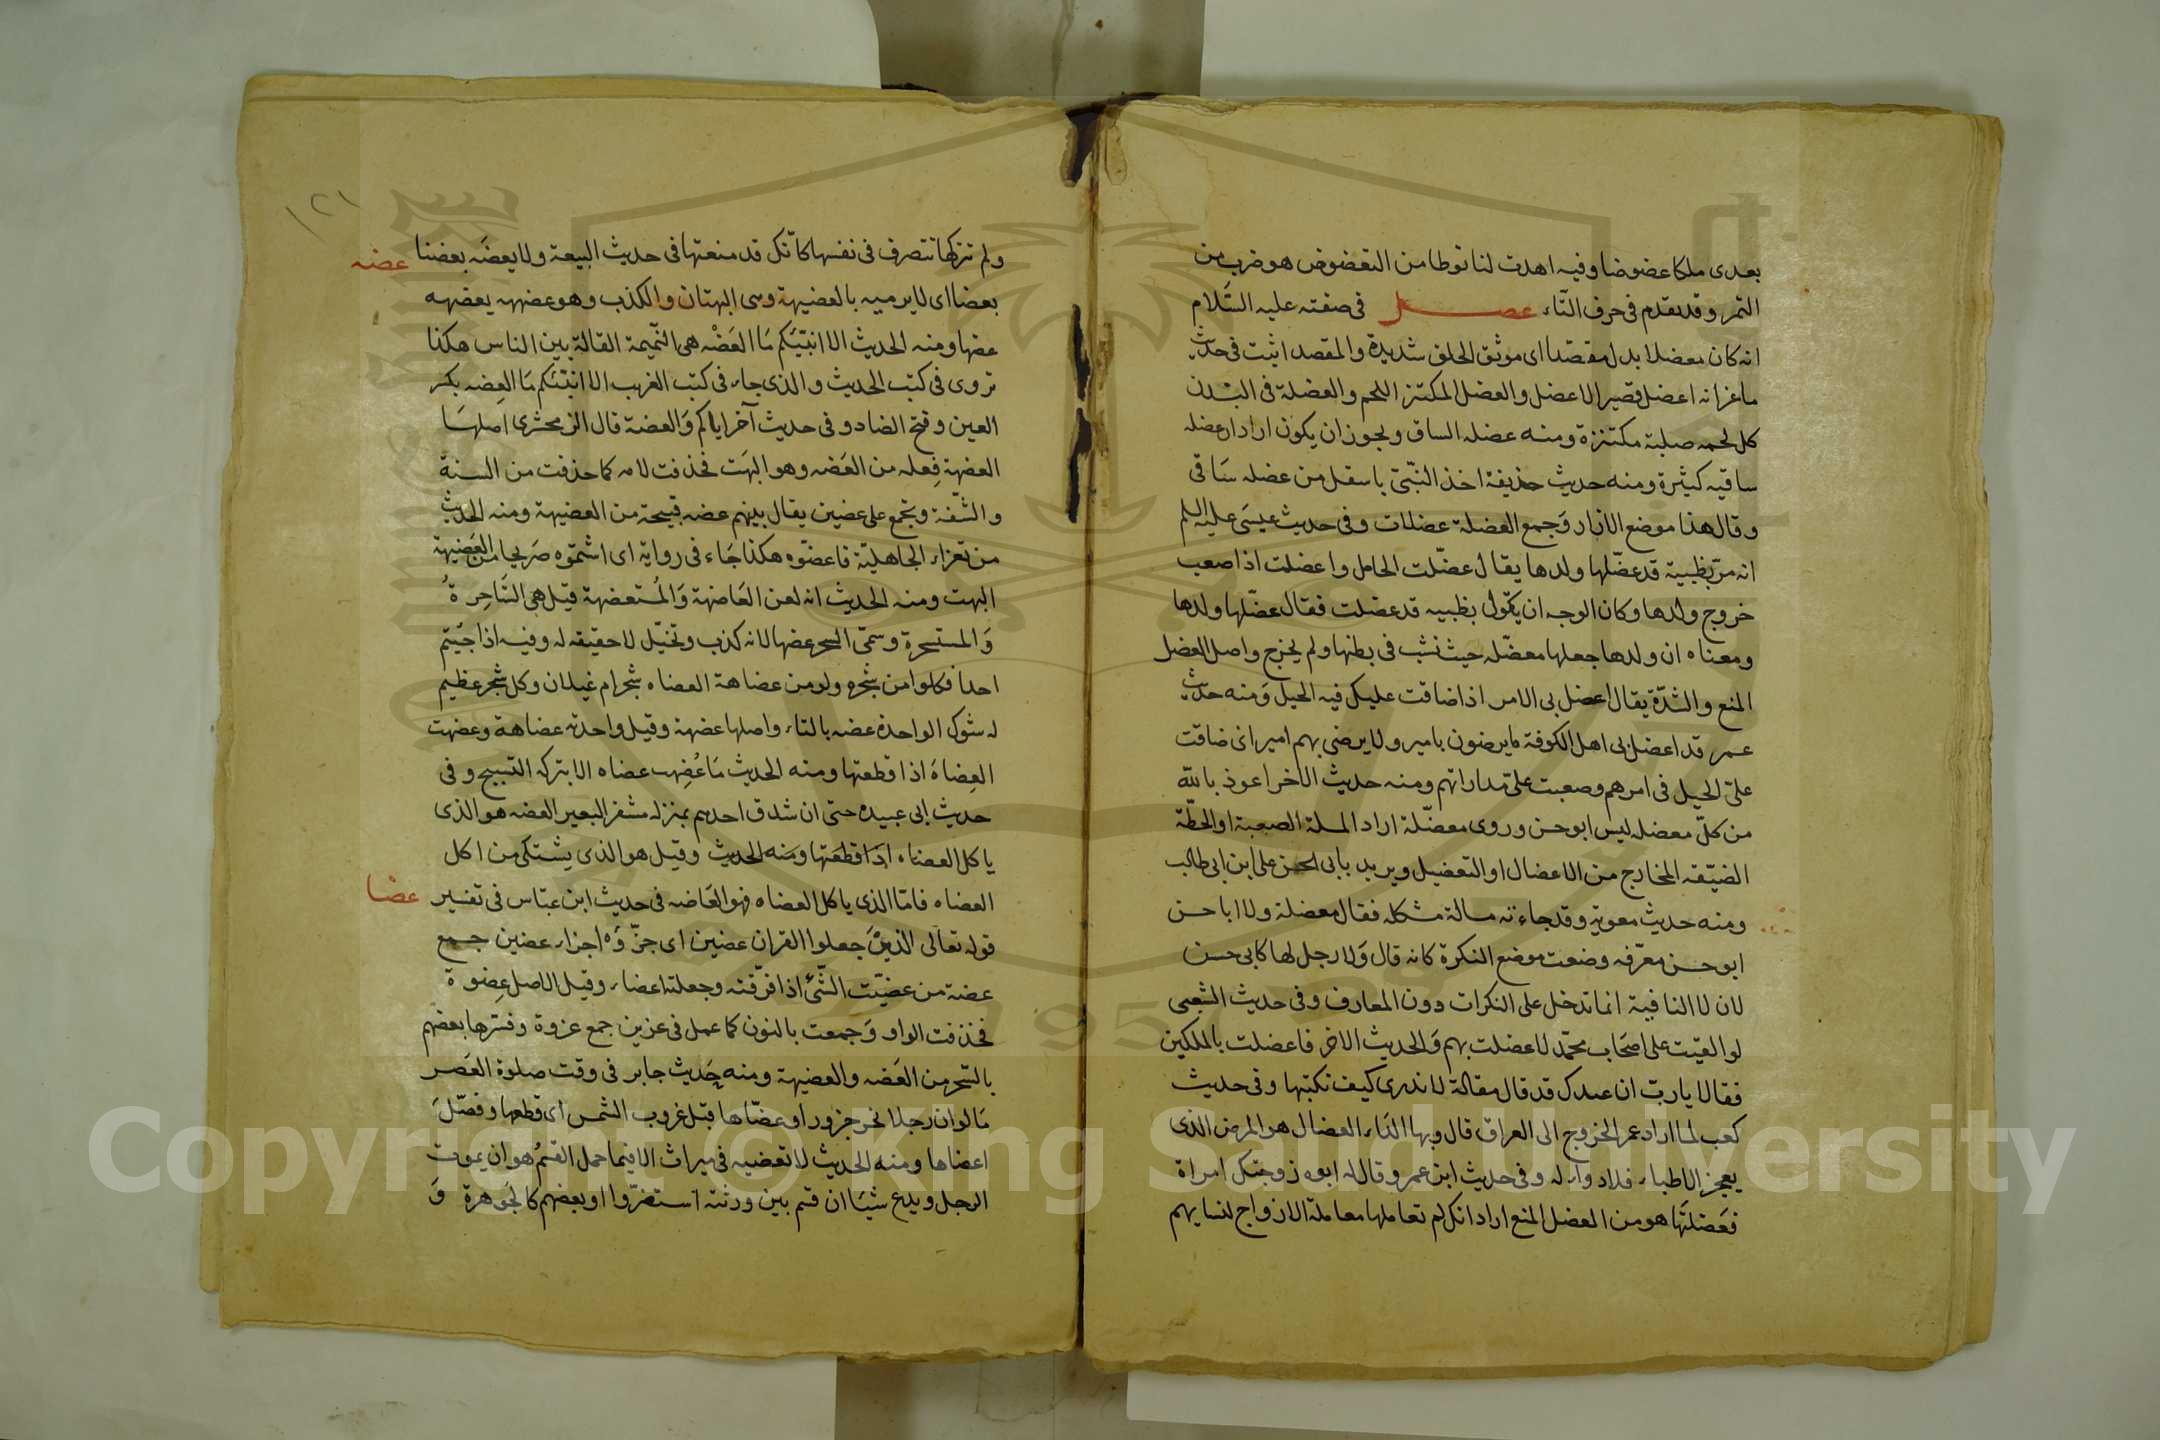 بعدى ملكا عضوضا وفيه اهدت لنا نوطا من التعضوض هو ضرب من
التمر وقد تقدم فى حرف التاء عضل فى صفته عليه السلام
انه كان معضلا بدل مقصدا اى موثق الخلق شديدة والمقصد اثبت فى حديث
ماعز انه اعضل قصير الاعضل والعضل المكتنز اللحم والعضلة فى البدن
كل لحمه صلبة مكتنزة ومنه عضله الساق ويجوز ان يكون اراد ان عضله
ساقيه كثيرة ومنه حديث حذيفة اخذ النبى باسفل من عضله ساقى
وقال هذا موضع الازار وجمع العضلة عضلات وفى حديث عيسى عليه السلم
انه مر بظبية قد عضلها ولدها يقال عضلت الحامل واعضلت اذا صعب
خروج ولدها وكان الوجه ان يقول بظبيه قد عضلت فقال عضلها ولدها
ومعناه ان ولدها جعلها معضله حيث نشب فى بطنها ولم يخرج واصل العضل
المنع والشدة يقال اعضل بى الامر اذا ضاقت عليك فيه الحيل ومنه حديث
عمر قد اعضل بى اهل الكوفة ما يرضون بامير ولا يرضى بهم امير اى ضاقت
على الحيل فى امرهم وصعبت على مداراتهم ومنه حديث الاخر اعوذ بالله
من كل معضله ليس ابو حسن وروى معضلة اراد المسلة الصعبة او الخطة
الضيقه المخارج من الاعضال او التعضيل ويريد بابى الحسن على ابن ابى طالب
ومنه حديث معوية وقد جاءته مسالة مشكله فقال معضلة ولا ابا حسن
ابو حسن معرفه وضعت موضع النكرة كانه قال ولا رجل لها كابى حسن
لان لا النافية انما تدخل على النكرات دون المعارف وفى حديث الشعبى
لو القيت على اصحاب محمد لاعضلت بهم والحديث الاخر فاعضلت بالملكين
فقالا يا رب ان عبدك قد قال مقالة لا ندرى كيف نكتبها وفى حديث
كعب لما اراد عمر الخروج الى العراق قال وبها الداء العضال هو المرض الذى
يعجز الاطباء فلا دواء له وفى حديث ابن عمر وقال له ابوه زوجتك امراة
فعضلتها هو من العضل المنع اراد انك لم تعاملها معاملة الازواج لنسايهم
١٢١
ولم تتركها تتصرف فى نفسها كانك قد منعتها فى حديث البيعة ولا يعضه بعضنا
عضه
بعضا اى لا يرميه بالعضيهة وهى البهتان والكذب وهو عضهه يعضهه
عضها ومنه الحديث الا انبئكم ما العضه هى النميمة القالة بين الناس هكذا
تروى فى كتب الحديث والذى جاء فى كتب الغريب الا انبئكم ما العضه بكسر
العين وفتح الضاد وفى حديث آخر اياكم والعضة قال الزمخشرى اصلها
العضهة فعله من العضه وهو البهت فحذفت لامه كما حذفت من السنة
والشفة وتجمع على عضين يقال بينهم عضه قبيحة من العضيهة ومنه الحديث
من تعزاء الجاهلية فاعضوه هكذا جاء فى رواية اى اشتموه صريحا من العضيهة
البهت ومنه الحديث انه لعن العاضهة والمستعضهة قيل هى الساحرة
والمستسحرة وسمى السحر عضها لانه كذب وتخيل لا حقيقه له وفيه اذا جئتم
احدا فكلوا من شجره ولو من عضاهة العضاه شجر ام غيلان وكل شجر عظيم
له شوك الواحدة عضه بالتاء واصلها عضهة وقيل واحدته عضاهة وعضهت
العضاه اذا قطعتها ومنه الحديث ما عضهت عضاه الا بتركه التسبيح وفى
حديث ابى عبيده حتى ان شدق احدهم بمنزله مشفر البعير العضه هو الذى
ياكل العضاه اذا قطعتها ومنه الحديث وقيل هو الذى يشتكى من اكل
العضاه فاما الذى ياكل العضاه فهو العاضه فى حديث ابن عباس فى تفسير
عضا
قوله تعالى الذين جعلوا القران عضين اى جزؤه اجزاء عضين جمع
عضة من عضيت الشئ اذا فرقته وجعلته اعضاء وقيل الاصل عضوة
فحذفت الواو وجمعت بالنون كما عمل فى عزين جمع عزوة وفسرها بعضهم
بالسحر من العضه والعضيهة ومنه حديث جابر فى وقت صلوة العصر
ما لو ان رجلا نحر جزورا وعضاها قبل غروب الشمس اى قطعها وفصل
اعضاها ومنه الحديث لا تعضيه فى ميراث الا فيما حمل القسم هو ان يموت
الرجل ويدع شيئا ان قسم بين ورثته استضروا او بعضهم كالجوهرة و
Copyright © King Saud University
1957